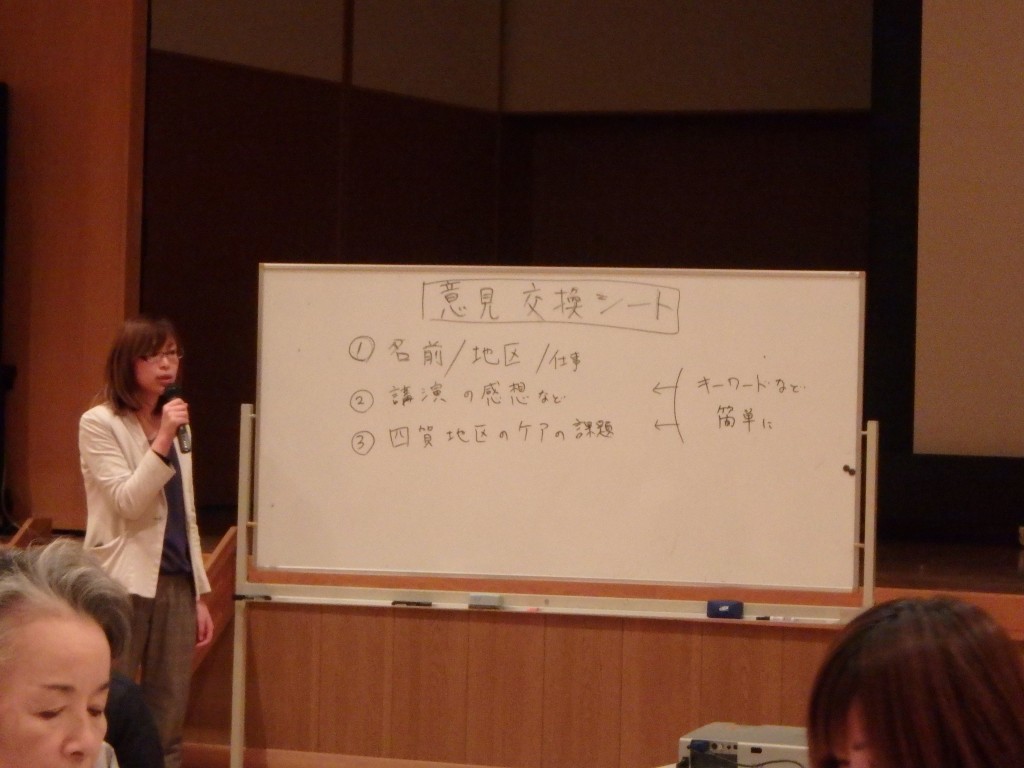 意見交換シート
① 名前/地区/仕事
② 講演の感想など
③ 四賀地区のケアの課題
← キーワードなど
← 簡単に